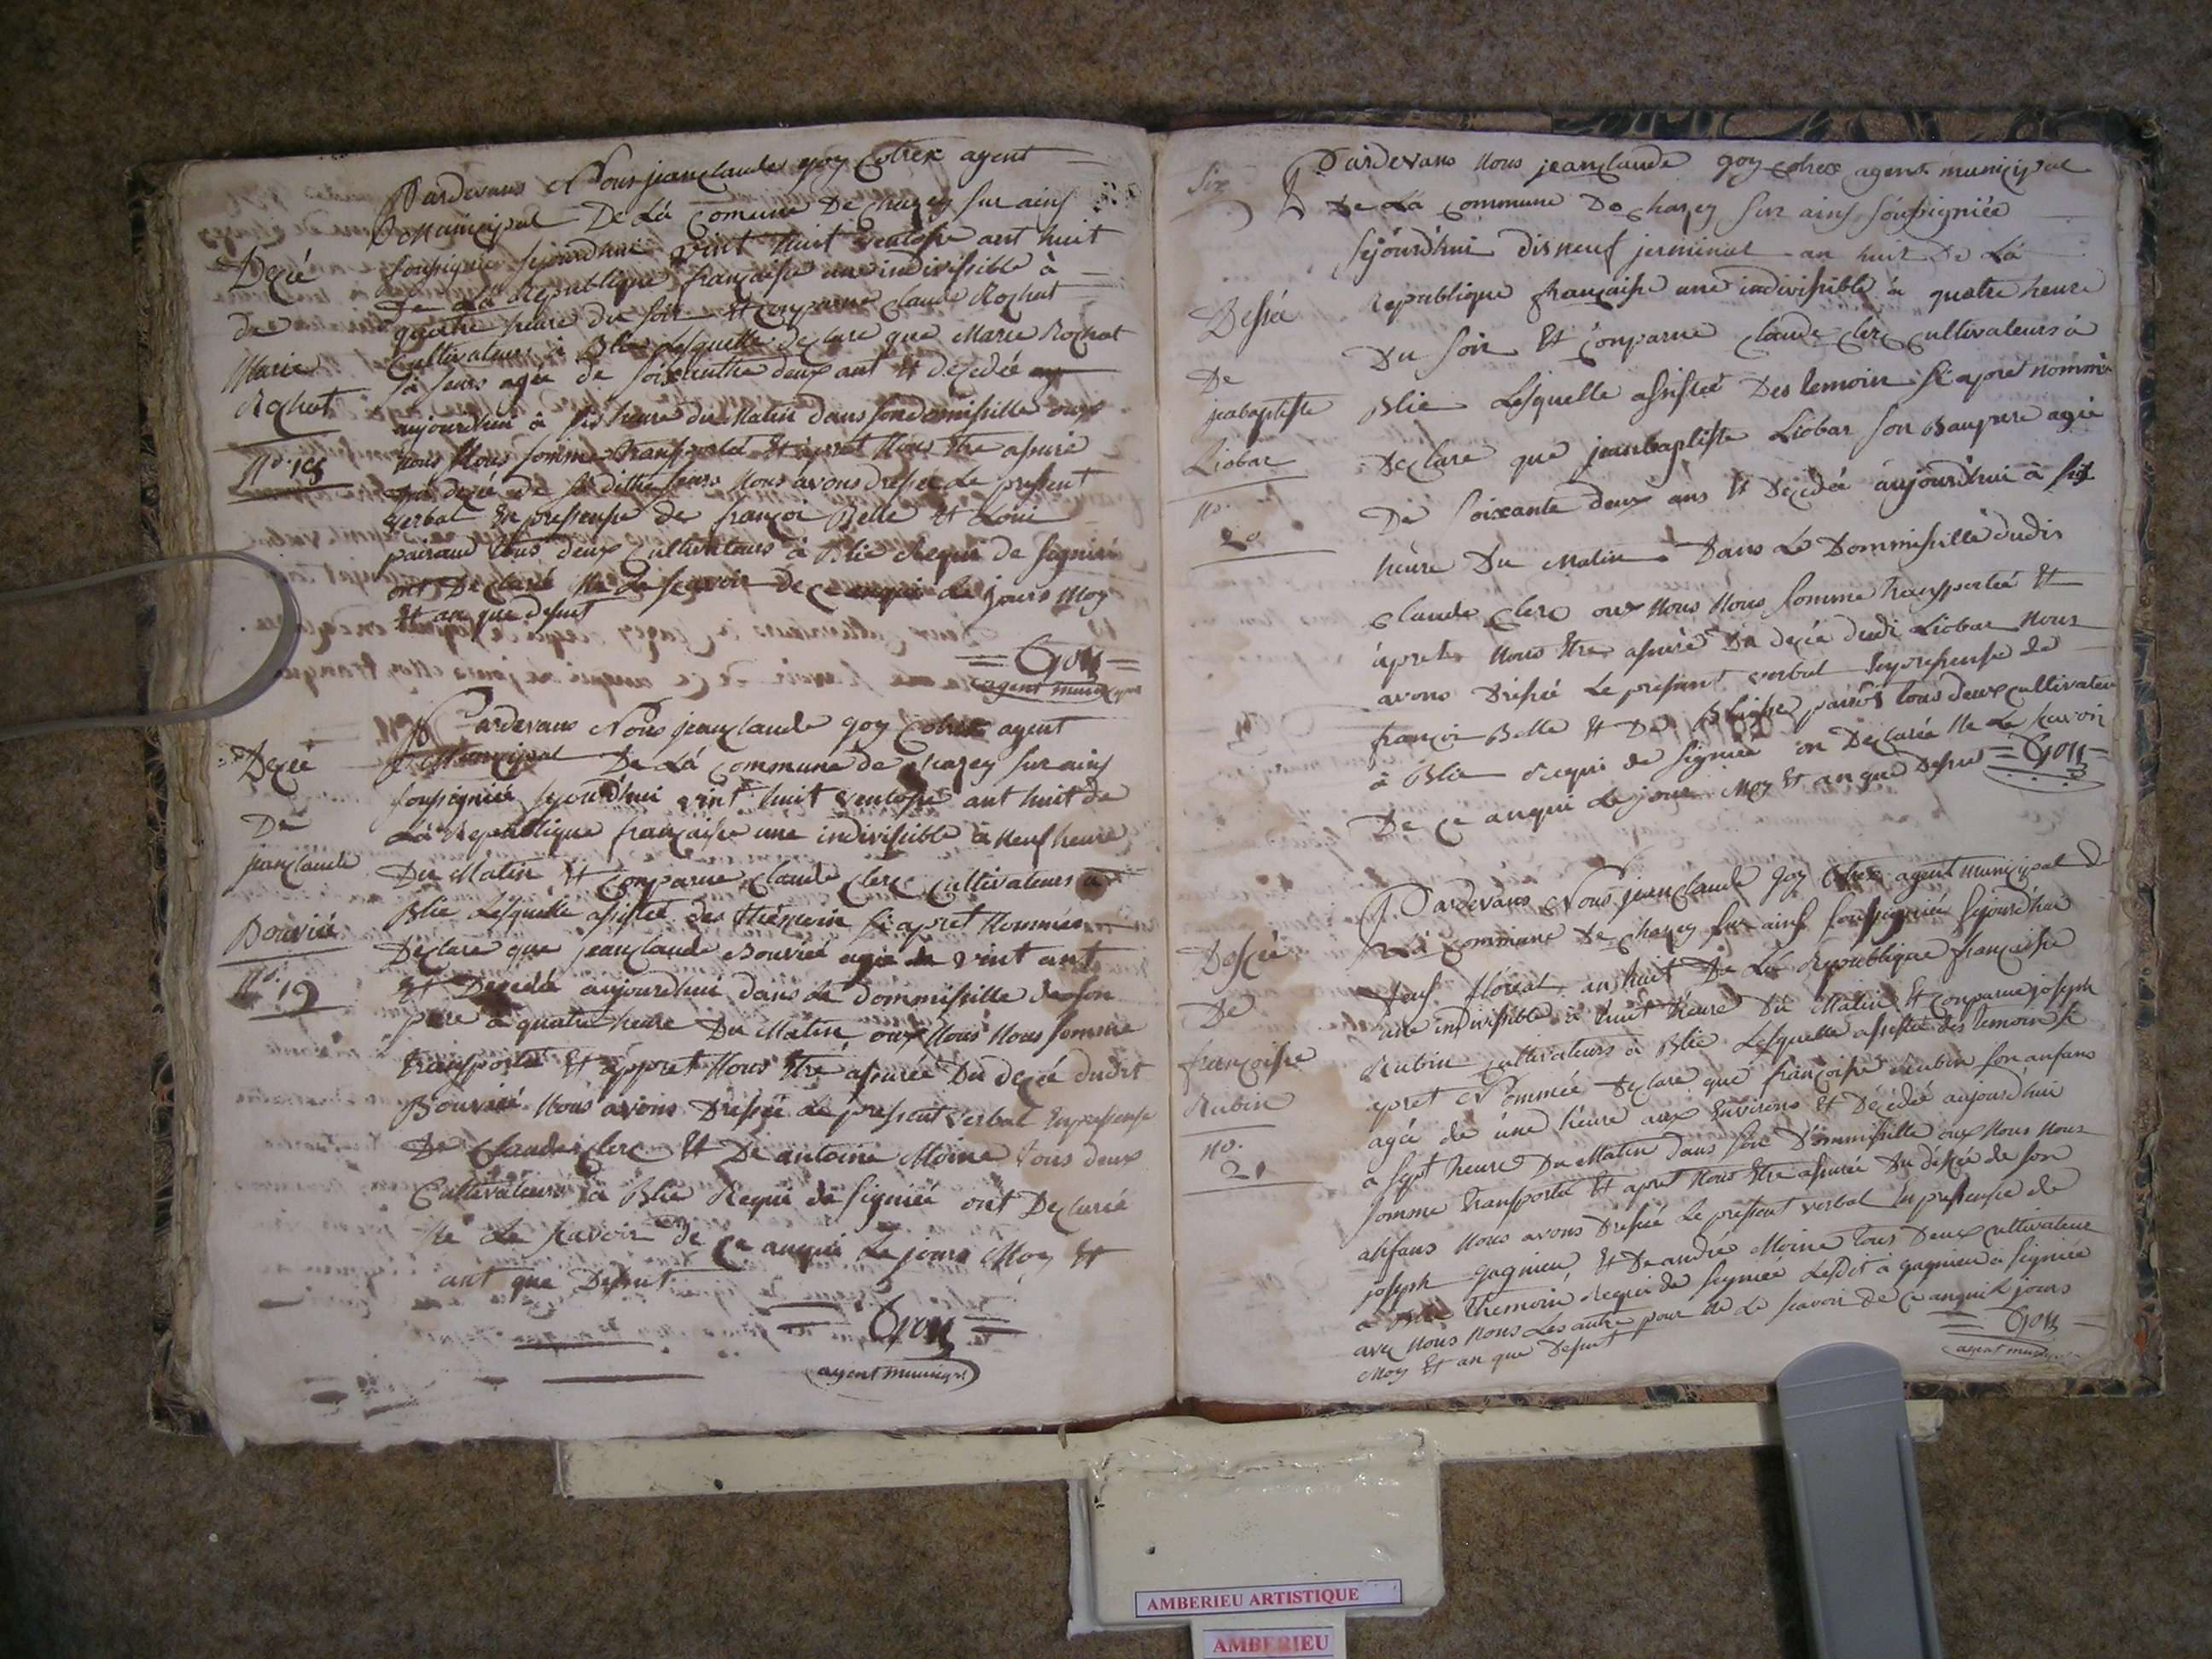 Pardevans Nous jeanclaude goy Cotrex agent
Municipal De La Comune De chazey sur ains
soussignié sejourdhui vint huit ventosse ant huit
De La Republique francaise une indivissible à
quatre heure du soir Et Conparue claude Rochat
Cultivateurs à Blie lesquelle declare que Marie Rochat
sa seurs agée de soixanthe deux ant Et decedée
aujourdhui à six heure du Matin dans son domissille oux
nous Nous somme transportée Et apret Nous Etre assuré
du decée de sa dithe seurs Nous avons dressée Le present
verbal En pressense de françoi Belle Et Loui
pairaud tous deux Cultivateurs à Blie Requi de signiée
ont Declaré Ne Le scavoir de ce enqui Le jours Moy
Et an que dessut
Decée
de
Marie
Rochat
No. 18
= Goy =
agent municipal
Pardevans Nous jeanclaude goy Cotrex agent
Municipal De La Commune de chazey sur ains
soussigniée sejourd'hui vint huit ventosse ant huit de
La Republique francaise une indivissible à Neuf heure
Du Matin Et Conparue Claude Clerc Cultivateurs à
Blie Lesquelle assistée des themoin si apret Nommée
Declare que jeanclaude Bouvié agée de vint ant
Et Decedée aujourdhui dans Le dommissille de son
pere a quatre heure Du Matin oux Nous Nous somme
transportée Et appret Nous Etre assurée Du decée dudit
Bouvié Nous avons Dressée Le present verbal Enpressense
De Claude Clerc Et De antoine Moine tous deux
Cultivateurs à Blie Requi de signiée ont Declarée
Ne Le scavoir de Ce anqui Le jours Moy Et
ant que Dessut
Decée
De
jeanclaude
Bouvié
No. 19
= Goy =
agent municipal
Six
Pardevans Nous jeanclaude goy cotrex agent municipal
De La Commune De chazey sur ains soussigniée
sejourd'hui disneuf jerminal an huit De La
Republique francaise une indivissible à quatre heure
Du soir Et Conparue claude clerc cultivateurs à
Blie Lesquelle assistée Des temoin si apret nommé
Declare que jeanbaptiste Liobar son Beaupere agée
De soixante deux ans Et Decedée aujourd'hui à six
heure Du Matin Dans Le Dommissille dudis
Claude Clerc oux Nous Nous somme transportée Et
apret Nous Etre assuré Du decée dudi Liobar Nous
avons Dressée Le pressant verbal Enpressense de
françoi Belle Et De tous deux cultivateu
à Blie Requi de signiée on Declarée Ne Le scavoir
De ce anqui Le jour Moy Et an que Dessut = Goy =
Dessée
De
jeabaptiste
Liobar
No.
20
Pardevans Nous jeanclaude goy Cotrex agent municipal de
La Commune De chazey sur ains soussigniée sejourd'hui
Neuf floreal an huit De La Republique francaise
une indivissible à huit heure Du Matin Et Conparue joseph
Rubin cultivateurs à Blie Lesquelle assistée des temoin si
apret Nommée Declare que françoise Rubin son anfans
agée de une heure aux Environs Et Décédée aujourd'hui
a sept heure Du Matin dans son Dommissille oux Nous Nous
somme transportée Et apret Nous Etre assurée Du decée de son
ansfans Nous avons Dressée Le present verbal En pressense de
joseph gagnieu Et De andrée Moine tous Deux cultivateur
a Blie themoin Requi de signiée Lesdit a gagnieu a signiée
avec Nous Nous Les autre pour Ne Le scavoir de Ce anqui Le jours
Moy Et an que Dessut
Dessée
De
françoise
Rubin
No.
21
= Goy =
agent municipal
AMBERIEU ARTISTIQUE
AMBERIEU